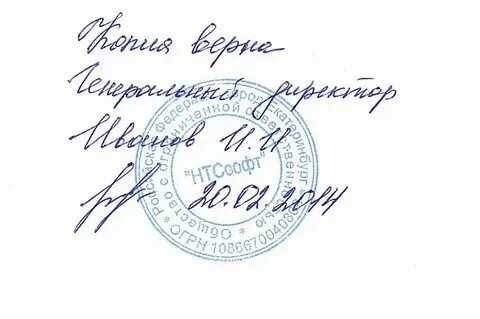 Копия верна
Генеральный директор
Иванов И.И
20.02.2014
* Российская Федерация город Екатеринбург *
Общество с ограниченной ответственностью
"НТСсофт"
ОГРН